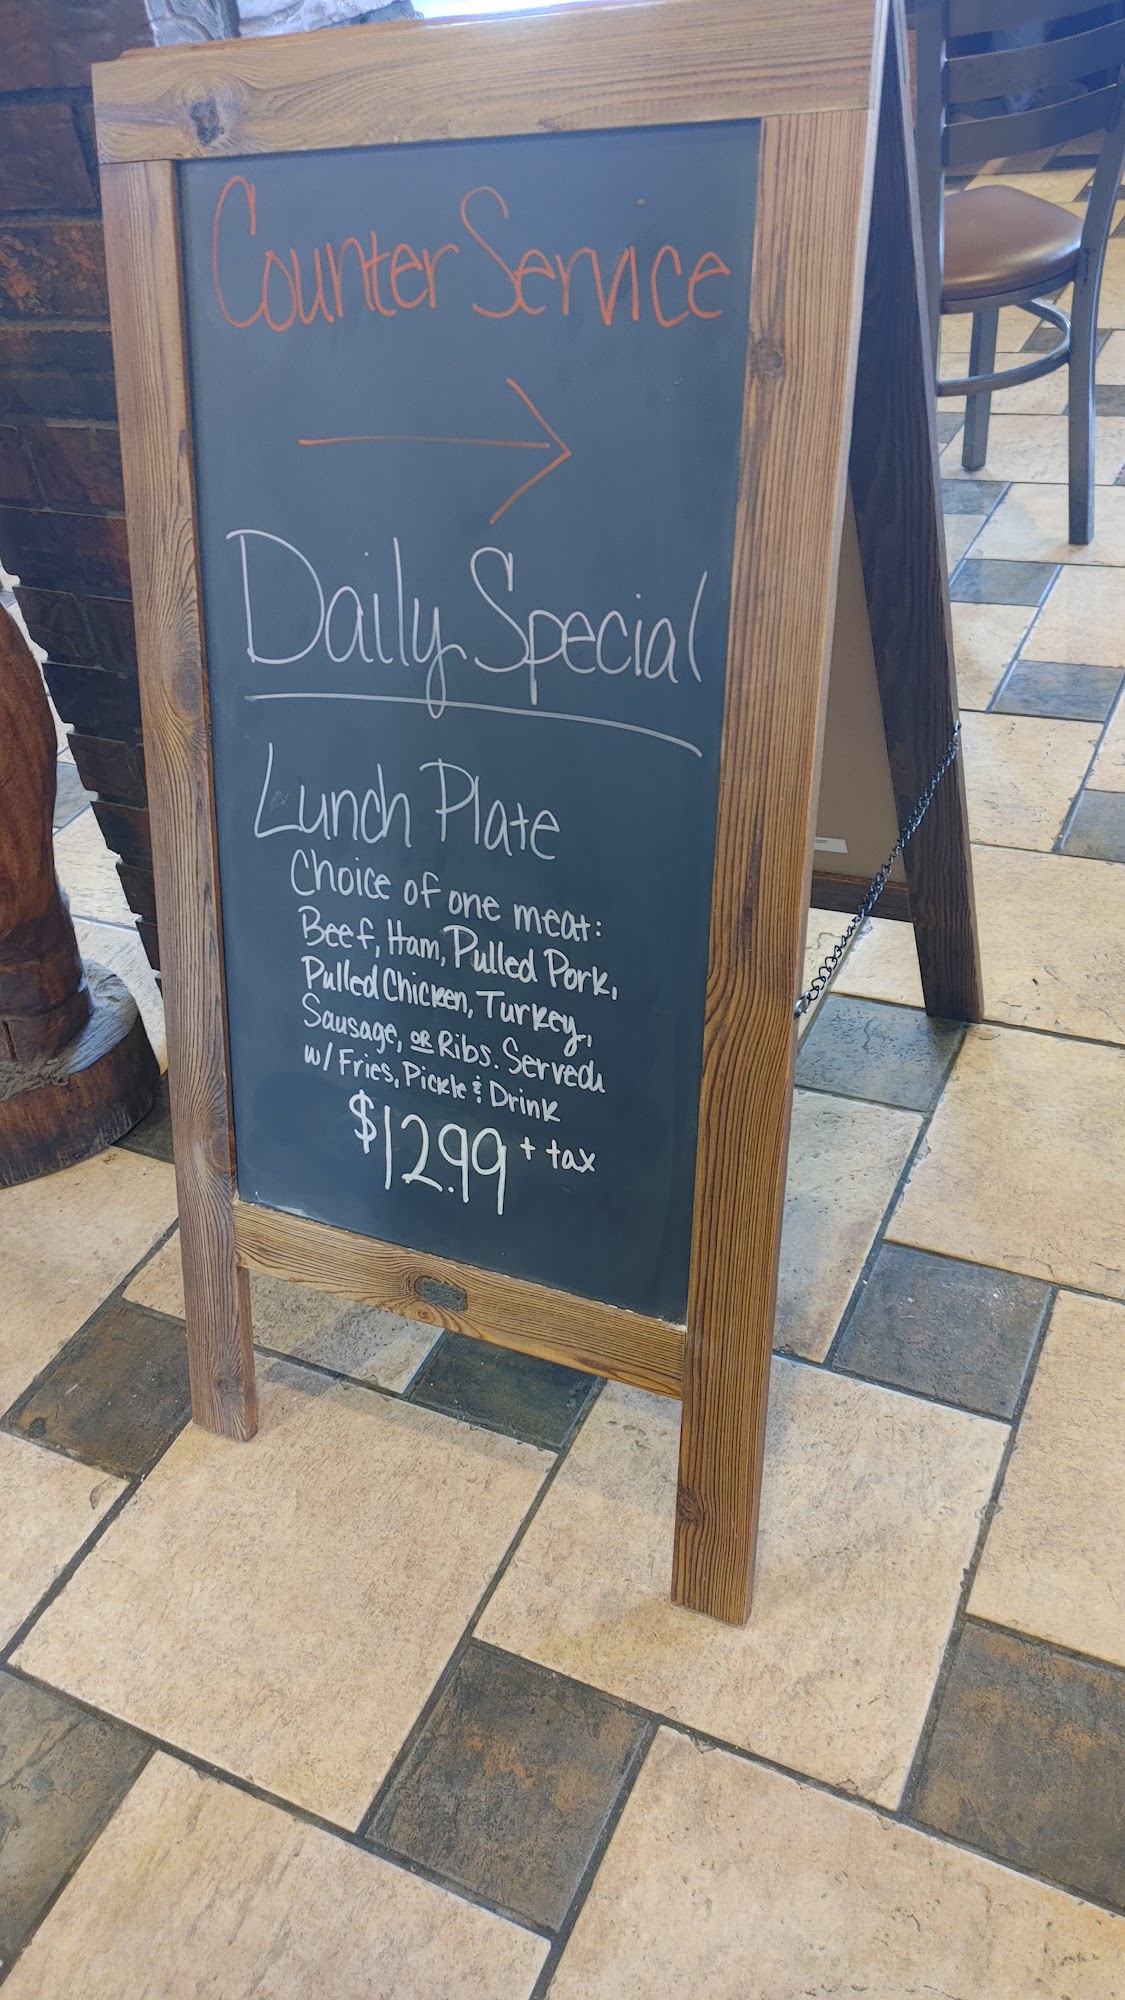 Counter Service
Daily Special
Lunch Plate
Choice of one meat:
Beef, Ham, Pulled Pork,
Pulled Chicken, Turkey,
Sausage, OR Ribs. Served
w/ Fries, Pickle & Drink
$12.99 + tax